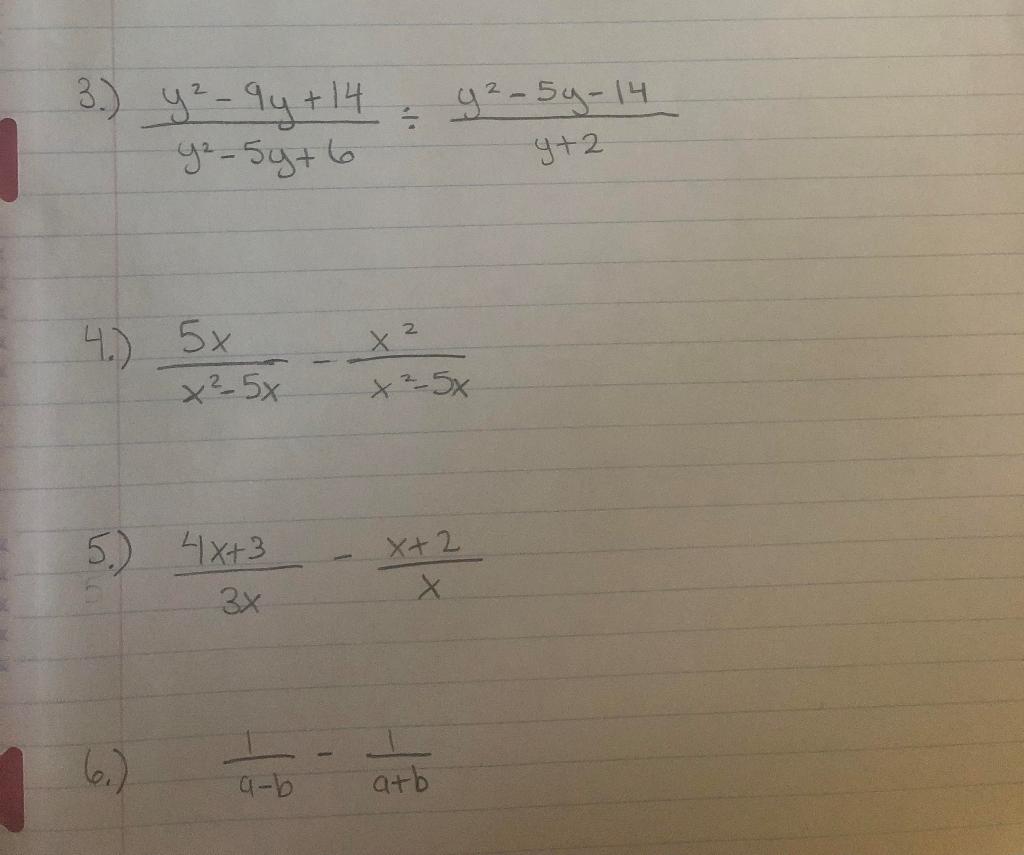 3.) (y² - 9y + 14)/(y² - 5y + 6) ÷ (y² - 5y - 14)/(y + 2)
4.) 5x/(x² - 5x) - x²/(x² - 5x)
5.) (4x + 3)/3x - (x + 2)/x
6.) 1/(a - b) - 1/(a + b)